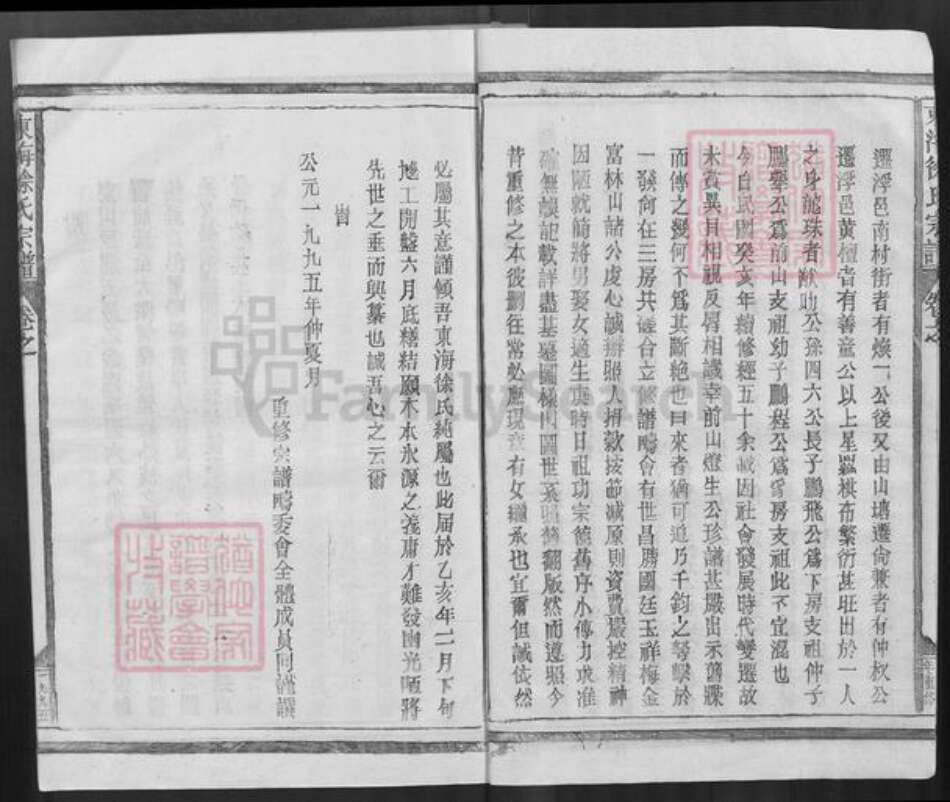 遷浮邑南村街者有煥一公後又由山塘遷尚兼者有仲权公
遷浮邑黃檀者有善童公以上星羅棋布繁衍甚旺出於一人
之身龍珠者猷功公孫四六公長子鵬飛公為下房支祖仲子
鵬舉公為前山支祖幼子鵬程公為房支祖此不宜混也
今自民國癸亥年續修經五十余誠因社會發展時代變遷故
未實異目相視反唇相譏幸前山燈生公珍譜甚嚴出示舊牒
而傳之幾何不為其斷絕也曰來者猶可追乃千鈞之弩擊於
一發何在三房共謀合立修譜疇會有世昌勝國廷玉祥梅金
富林山諸公處心誠辦照人捐款按節減原則資費嚴控精神
因陋就簡將男娶女適生庚時日祖功宗德舊序小傳力求准
確無誤記載詳盡基墓圖様山圖世系明瞭翻版然而遵照今
昔重修之本彼删往常於應現章有女繼承也宜爾但誠依然
必屬其意謹領吾東海徐氏純屬也此届於乙亥年二月下旬
摅工開盤六月底繕結願木本水源之義庸才難發幽光陋將
先世之垂而興纂也誠吾心之云爾
旹
公元一九九五年仲夏月
重修宗譜疇委會全體成員同謹譔
東海徐氏宗譜
卷之
東海徐氏宗譜
卷之
FamilySearch